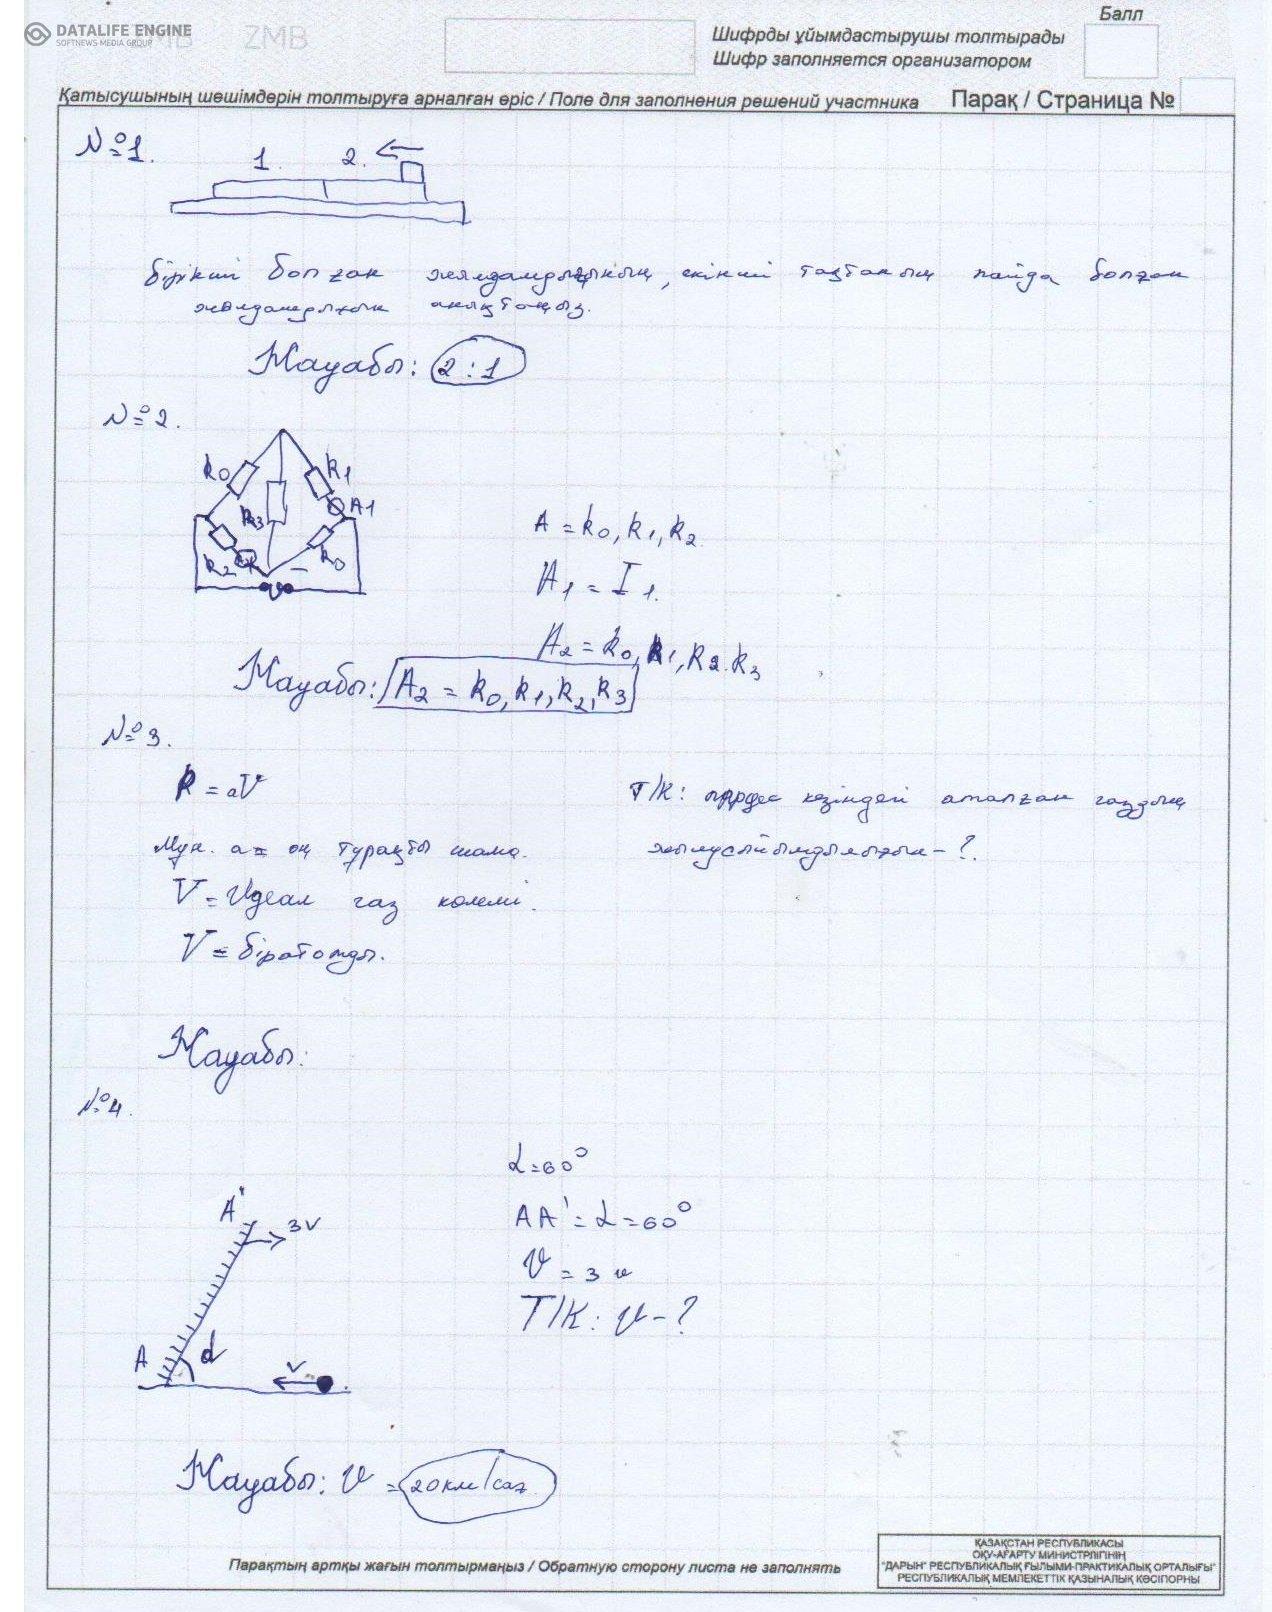 DATALIFE ENGINE
SOFTNEWS MEDIA GROUP
ZMB
Балл
Шифрды ұйымдастырушы толтырады
Шифр заполняется организатором
Қатысушының шешімдерін толтыруға арналған өріс / Поле для заполнения решений участника
Парақ / Страница №
№1.
1. 2.
бірікті болған жылдамдығының, екінші тақтаның пайда болған
жылдамдығын анықтаңыз.
Жауабы: 2:1
№2.
R0 R1
R3 A1
R2 R0
A = R0, R1, R2.
A1 = I1.
A2 = R0, R1, R2. R3
Жауабы: A2 = R0, R1, R2, R3
№3.
P = aV
Т/К: кезіндегі аталған газдың
Мұн. a = оң тұрақты шама.
жылусыйымдылығын - ?.
V = Идеал газ көлемі.
V = біратомды.
Жауабы:
№4.
α = 60°
A' 3v
AA' = α = 60°
v = 3v
Т/К: v - ?
A α v
Жауабы: v = 20км/сағ
Парақтың артқы жағын толтырмаңыз / Обратную сторону листа не заполнять
ҚАЗАҚСТАН РЕСПУБЛИКАСЫ
ОҚУ-АҒАРТУ МИНИСТРЛІГІНІҢ
"ДАРЫН" РЕСПУБЛИКАЛЫҚ ҒЫЛЫМИ-ПРАКТИКАЛЫҚ ОРТАЛЫҒЫ"
РЕСПУБЛИКАЛЫҚ МЕМЛЕКЕТТІК ҚАЗЫНАЛЫҚ КӘСІПОРНЫ